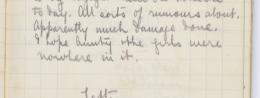 to day. All sorts of rumours about.
Apparently much damage done.
I hope Aunty & the girls were
nowhere in it.